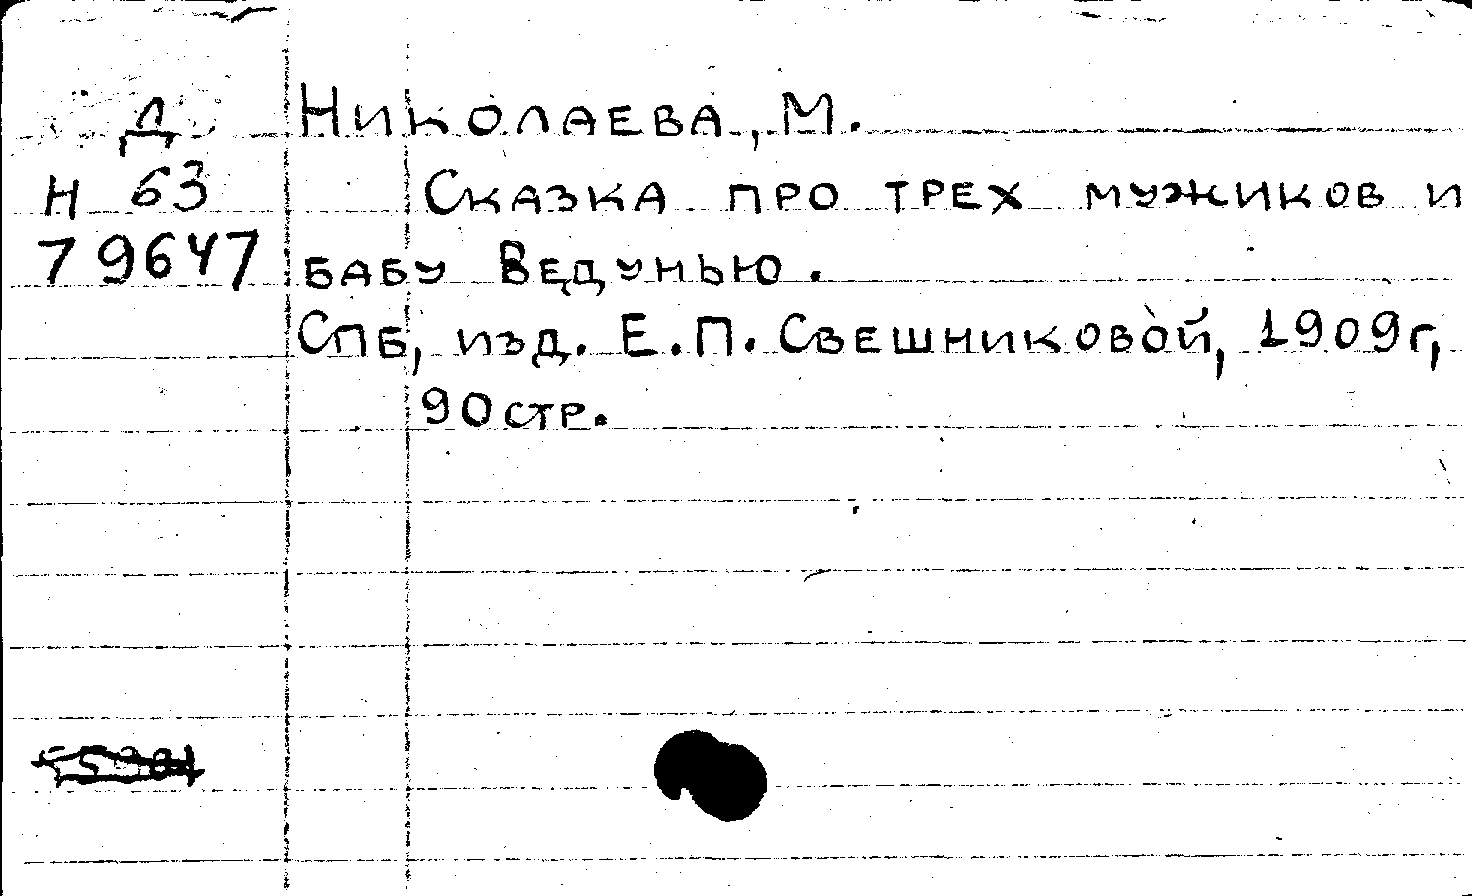 Д
Николаева, М.
Н 63
Сказка про трех мужиков и
79647
бабу Ведунью.
Спб, изд. Е.П. Свешниковой, 1909г,
90 стр.